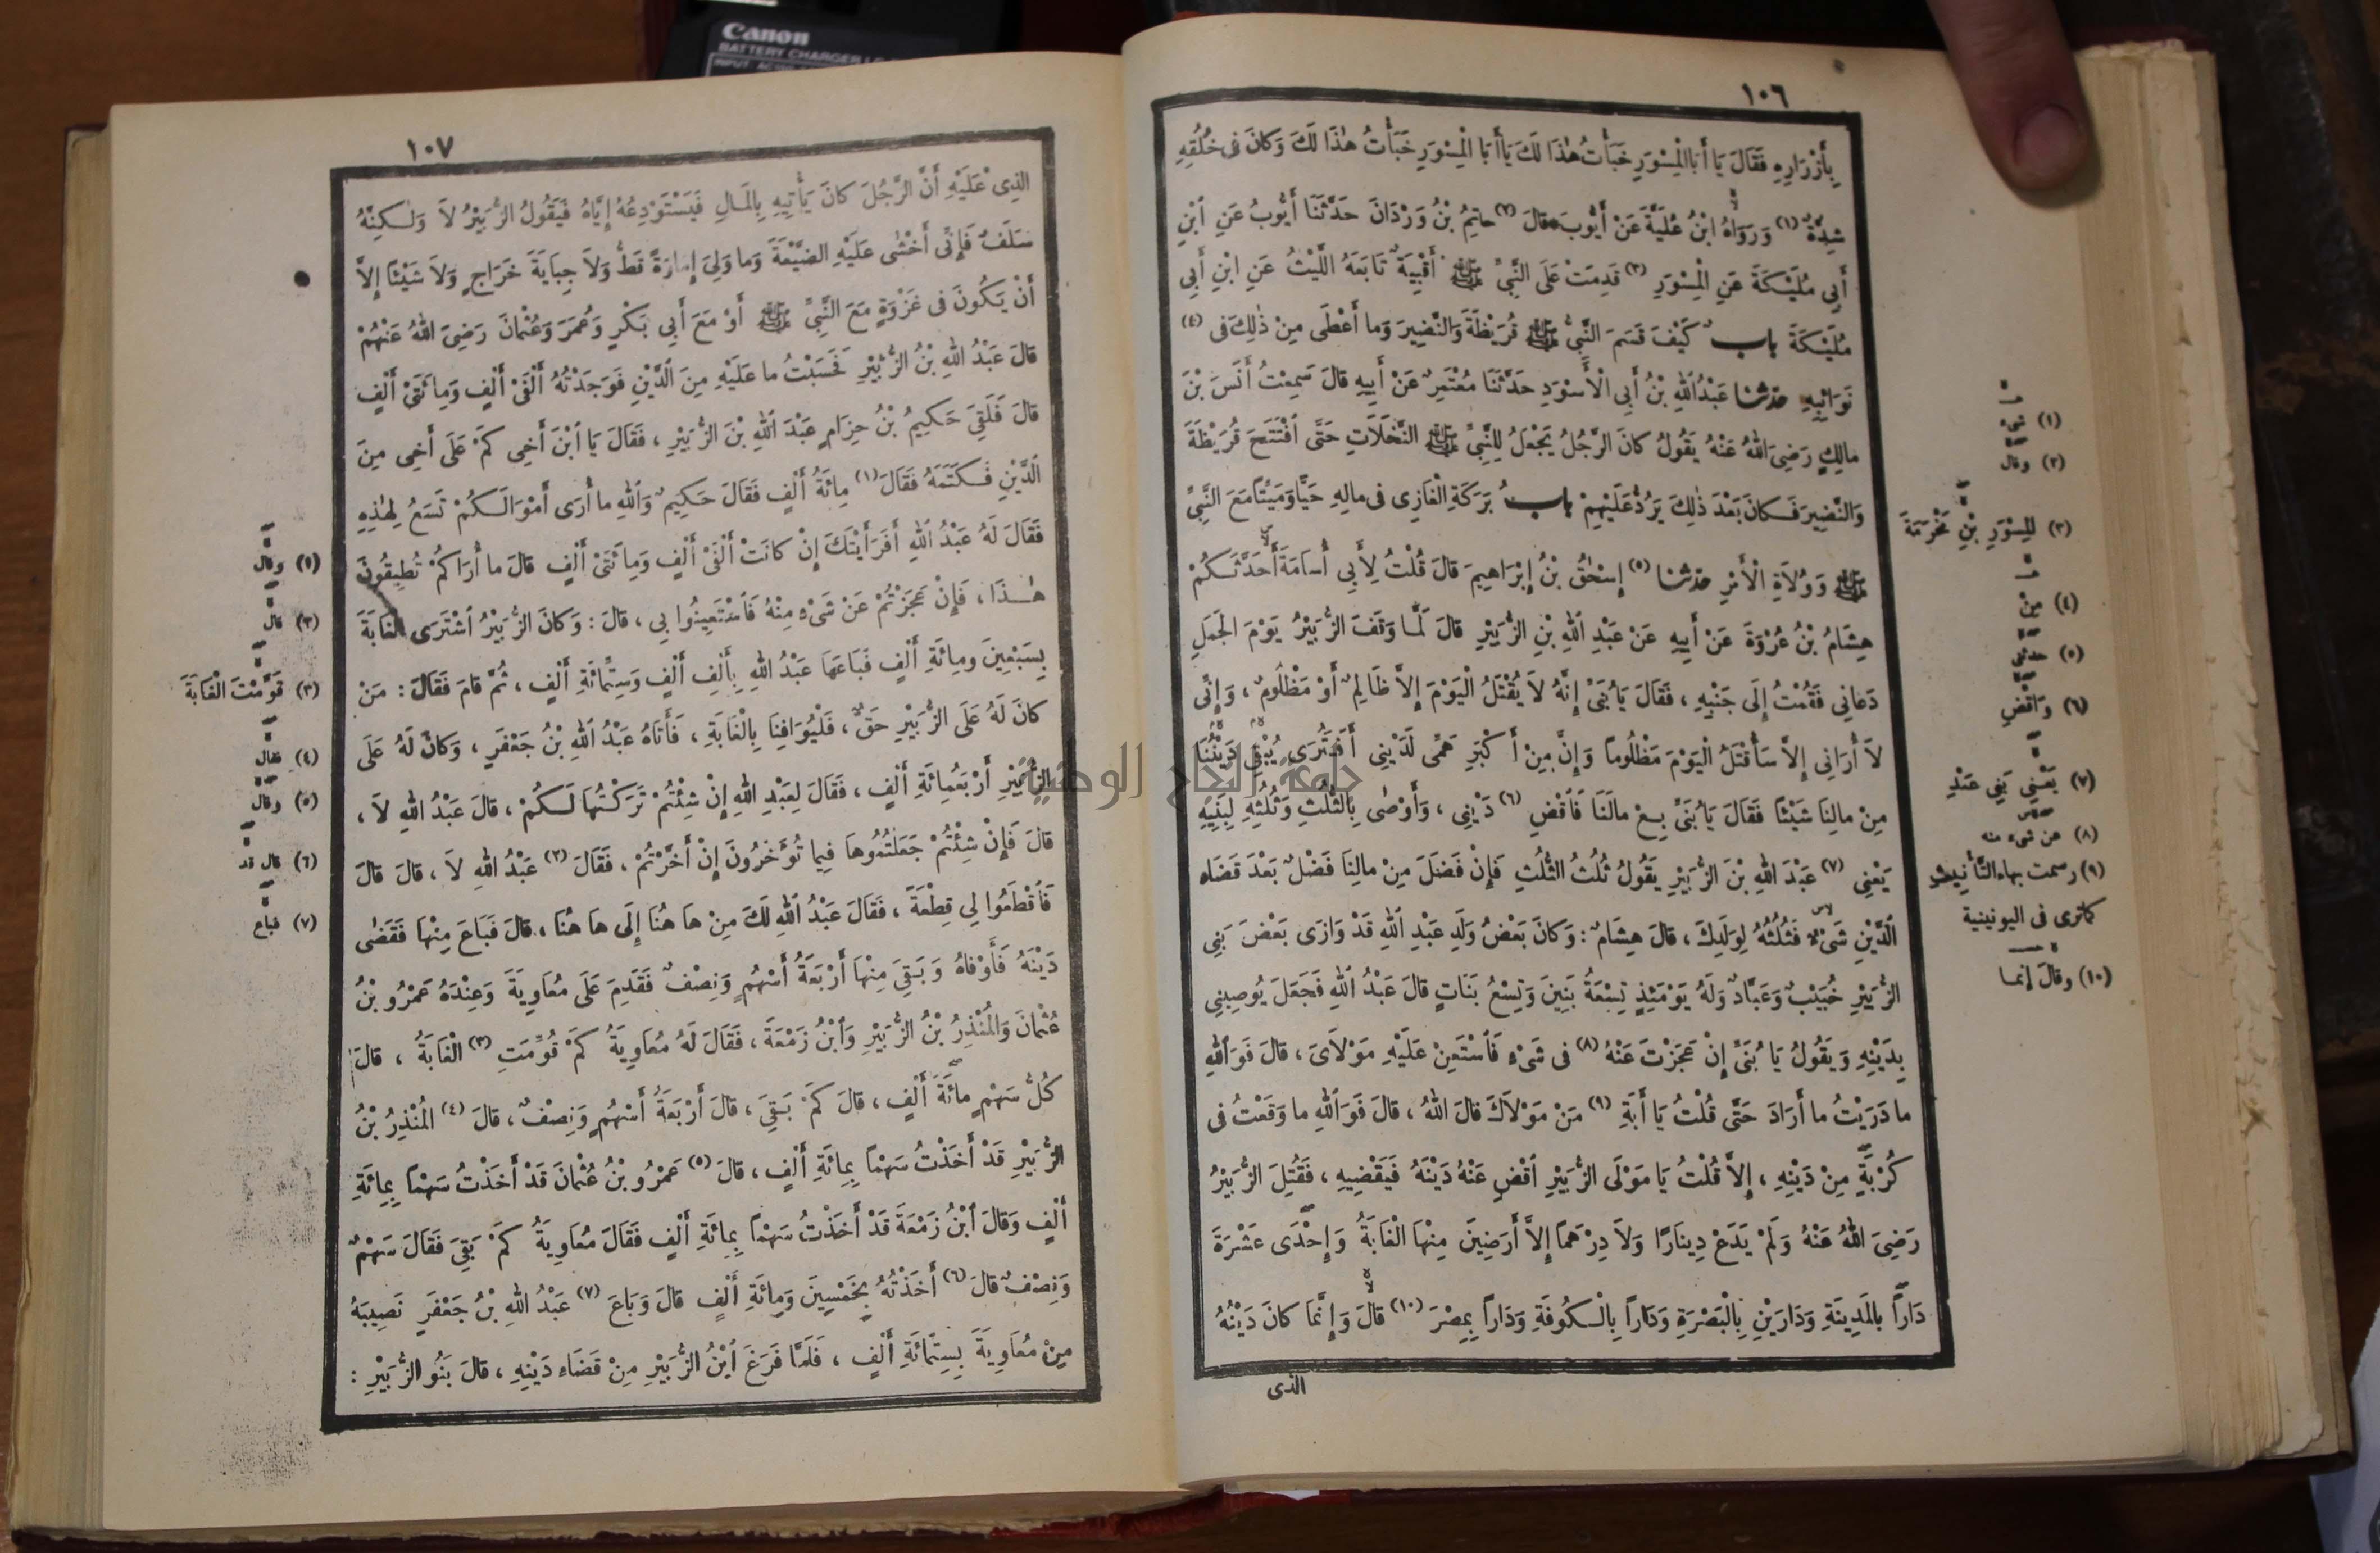 Canon
BATTERY CHARGER
١٠٦
بِأَزْرَارِهِ فَقَالَ يَا أَبَا الْمِسْوَرِ خَبَأْتُ هٰذَا لَكَ يَا أَبَا الْمِسْوَرِ خَبَأْتُ هٰذَا لَكَ وَكَانَ فِى خُلُقِهِ
شِدَّةٌ (١) وَرَوَاهُ ابْنُ عُلَيَّةَ عَنْ أَيُّوبَ قَالَ (٢) حَاتِمُ بْنُ وَرْدَانَ حَدَّثَنَا أَيُّوبُ عَنِ ابْنِ
أَبِى مُلَيْكَةَ عَنِ الْمِسْوَرِ (٣) قَدِمَتْ عَلَى النَّبِىِّ ﷺ أَقْبِيَةٌ تَابَعَهُ اللَّيْثُ عَنِ ابْنِ أَبِى
مُلَيْكَةَ بابٌ كَيْفَ قَسَمَ النَّبِىُّ ﷺ قُرَيْظَةَ وَالنَّضِيرَ وَمَا أَعْطَى مِنْ ذٰلِكَ فِى (٤)
نَوَائِبِهِ حَدَّثَنَا عَبْدُ اللهِ بْنُ أَبِى الْأَسْوَدِ حَدَّثَنَا مُعْتَمِرٌ عَنْ أَبِيهِ قَالَ سَمِعْتُ أَنَسَ بْنَ
مَالِكٍ رَضِىَ اللهُ عَنْهُ يَقُولُ كَانَ الرَّجُلُ يَجْعَلُ لِلنَّبِىِّ ﷺ النَّخَلَاتِ حَتَّى افْتَتَحَ قُرَيْظَةَ
وَالنَّضِيرَ فَكَانَ بَعْدَ ذٰلِكَ يَرُدُّ عَلَيْهِمْ بابُ بَرَكَةِ الْغَازِى فِى مَالِهِ حَيًّا وَمَيِّتًا مَعَ النَّبِىِّ
ﷺ وَوُلَاةِ الْأَمْرِ حَدَّثَنَا (٥) إِسْحٰقُ بْنُ إِبْرَاهِيمَ قَالَ قُلْتُ لِأَبِى أُسَامَةَ أَحَدَّثَكُمْ
هِشَامُ بْنُ عُرْوَةَ عَنْ أَبِيهِ عَنْ عَبْدِ اللهِ بْنِ الزُّبَيْرِ قَالَ لَمَّا وَقَفَ الزُّبَيْرُ يَوْمَ الْجَمَلِ
دَعَانِى فَقُمْتُ إِلَى جَنْبِهِ ، فَقَالَ يَا بُنَىِّ إِنَّهُ لَا يُقْتَلُ الْيَوْمَ إِلَّا ظَالِمٌ أَوْ مَظْلُومٌ ، وَإِنِّى
لَا أُرَانِى إِلَّا سَأُقْتَلُ الْيَوْمَ مَظْلُومًا وَإِنَّ مِنْ أَكْبَرِ هَمِّى لَدَيْنِى أَفَتُرَى يُبْقِى دَيْنُنَا
مِنْ مَالِنَا شَيْئًا فَقَالَ يَا بُنَىِّ بِعْ مَالَنَا فَاقْضِ (٦) دَيْنِى ، وَأَوْصٰى بِالثُّلُثِ وَثُلُثِهِ لِبَنِيهِ
يَعْنِى (٧) عَبْدَ اللهِ بْنَ الزُّبَيْرِ يَقُولُ ثُلُثُ الثُّلُثِ فَإِنْ فَضَلَ مِنْ مَالِنَا فَضْلٌ بَعْدَ قَضَاءِ
الدَّيْنِ شَىْءٌ فَثُلُثُهُ لِوَلَدِكَ ، قَالَ هِشَامٌ : وَكَانَ بَعْضُ وَلَدِ عَبْدِ اللهِ قَدْ وَازَى بَعْضَ بَنِى
الزُّبَيْرِ خُبَيْبٌ وَعَبَّادٌ وَلَهُ يَوْمَئِذٍ تِسْعَةُ بَنِينَ وَتِسْعُ بَنَاتٍ قَالَ عَبْدُ اللهِ فَجَعَلَ يُوصِينِى
بِدَيْنِهِ وَيَقُولُ يَا بُنَىِّ إِنْ عَجَزْتَ عَنْهُ (٨) فِى شَىْءٍ فَاسْتَعِنْ عَلَيْهِ مَوْلَاىَ ، قَالَ فَوَاللهِ
مَا دَرَيْتُ مَا أَرَادَ حَتَّى قُلْتُ يَا أَبَةِ (٩) مَنْ مَوْلَاكَ قَالَ اللهُ ، قَالَ فَوَاللهِ مَا وَقَعْتُ فِى
كُرْبَةٍ مِنْ دَيْنِهِ ، إِلَّا قُلْتُ يَا مَوْلَى الزُّبَيْرِ اقْضِ عَنْهُ دَيْنَهُ فَيَقْضِيهِ ، فَقُتِلَ الزُّبَيْرُ
رَضِىَ اللهُ عَنْهُ وَلَمْ يَدَعْ دِينَارًا وَلَا دِرْهَمًا إِلَّا أَرَضِينَ مِنْهَا الْغَابَةُ وَإِحْدَى عَشْرَةَ
دَارًا بِالْمَدِينَةِ وَدَارَيْنِ بِالْبَصْرَةِ وَدَارًا بِالْكُوفَةِ وَدَارًا بِمِصْرَ (١٠) قَالَ وَإِنَّمَا كَانَ دَيْنُهُ
الذى
(١) شىء
(٢) وقال
(٣) لِلْمِسْوَرِ بْنِ مَخْرَمَةَ
(٤) مِنْ
(٥) حدثنى
(٦) وَاقْضِ
(٧) يَعْنِى بَنِى عَبْدِ
(٨) عن شىء منه
(٩) رسمت بهاء التأنيث
كما ترى فى اليونينية
(١٠) وقال إنما
١٠٧
الَّذِى عَلَيْهِ أَنَّ الرَّجُلَ كَانَ يَأْتِيهِ بِالْمَالِ فَيَسْتَوْدِعُهُ إِيَّاهُ فَيَقُولُ الزُّبَيْرُ لَا وَلٰكِنَّهُ
سَلَفٌ فَإِنِّى أَخْشٰى عَلَيْهِ الضَّيْعَةَ وَمَا وَلِىَ إِمَارَةً قَطُّ وَلَا جِبَايَةَ خَرَاجٍ وَلَا شَيْئًا إِلَّا
أَنْ يَكُونَ فِى غَزْوَةٍ مَعَ النَّبِىِّ ﷺ أَوْ مَعَ أَبِى بَكْرٍ وَعُمَرَ وَعُثْمَانَ رَضِىَ اللهُ عَنْهُمْ
قَالَ عَبْدُ اللهِ بْنُ الزُّبَيْرِ فَحَسَبْتُ مَا عَلَيْهِ مِنَ الدَّيْنِ فَوَجَدْتُهُ أَلْفَىْ أَلْفٍ وَمِائَتَىْ أَلْفٍ
قَالَ فَلَقِىَ حَكِيمُ بْنُ حِزَامٍ عَبْدَ اللهِ بْنَ الزُّبَيْرِ ، فَقَالَ يَا ابْنَ أَخِى كَمْ عَلَى أَخِى مِنَ
الدَّيْنِ فَكَتَمَهُ فَقَالَ (١) مِائَةُ أَلْفٍ فَقَالَ حَكِيمٌ وَاللهِ مَا أُرَى أَمْوَالَكُمْ تَسَعُ لِهٰذِهِ
فَقَالَ لَهُ عَبْدُ اللهِ أَفَرَأَيْتَكَ إِنْ كَانَتْ أَلْفَىْ أَلْفٍ وَمِائَتَىْ أَلْفٍ قَالَ مَا أُرَاكُمْ تُطِيقُونَ
هٰذَا ، فَإِنْ عَجَزْتُمْ عَنْ شَىْءٍ مِنْهُ فَاسْتَعِينُوا بِى ، قَالَ : وَكَانَ الزُّبَيْرُ اشْتَرَى الْغَابَةَ
بِسَبْعِينَ وَمِائَةِ أَلْفٍ فَبَاعَهَا عَبْدُ اللهِ بِأَلْفِ أَلْفٍ وَسِتِّمِائَةِ أَلْفٍ ، ثُمَّ قَامَ فَقَالَ : مَنْ
كَانَ لَهُ عَلَى الزُّبَيْرِ حَقٌّ ، فَلْيُوَافِنَا بِالْغَابَةِ ، فَأَتَاهُ عَبْدُ اللهِ بْنُ جَعْفَرٍ ، وَكَانَ لَهُ عَلَى
الزُّبَيْرِ أَرْبَعُمِائَةِ أَلْفٍ ، فَقَالَ لِعَبْدِ اللهِ إِنْ شِئْتُمْ تَرَكْتُهَا لَكُمْ ، قَالَ عَبْدُ اللهِ لَا ،
قَالَ فَإِنْ شِئْتُمْ جَعَلْتُمُوهَا فِيمَا تُؤَخِّرُونَ إِنْ أَخَّرْتُمْ ، فَقَالَ (٢) عَبْدُ اللهِ لَا ، قَالَ قَالَ
فَاقْطَعُوا لِى قِطْعَةً ، فَقَالَ عَبْدُ اللهِ لَكَ مِنْ هَا هُنَا إِلَى هَا هُنَا ، قَالَ فَبَاعَ مِنْهَا فَقَضٰى
دَيْنَهُ فَأَوْفَاهُ وَبَقِىَ مِنْهَا أَرْبَعَةُ أَسْهُمٍ وَنِصْفٌ فَقَدِمَ عَلَى مُعَاوِيَةَ وَعِنْدَهُ عَمْرُو بْنُ
عُثْمَانَ وَالْمُنْذِرُ بْنُ الزُّبَيْرِ وَابْنُ زَمْعَةَ ، فَقَالَ لَهُ مُعَاوِيَةُ كَمْ قُوِّمَتِ (٣) الْغَابَةُ ، قَالَ
كُلُّ سَهْمٍ مِائَةَ أَلْفٍ ، قَالَ كَمْ بَقِىَ ، قَالَ أَرْبَعَةُ أَسْهُمٍ وَنِصْفٌ ، قَالَ (٤) الْمُنْذِرُ بْنُ
الزُّبَيْرِ قَدْ أَخَذْتُ سَهْمًا بِمِائَةِ أَلْفٍ ، قَالَ (٥) عَمْرُو بْنُ عُثْمَانَ قَدْ أَخَذْتُ سَهْمًا بِمِائَةِ
أَلْفٍ وَقَالَ ابْنُ زَمْعَةَ قَدْ أَخَذْتُ سَهْمًا بِمِائَةِ أَلْفٍ فَقَالَ مُعَاوِيَةُ كَمْ بَقِىَ فَقَالَ سَهْمٌ
وَنِصْفٌ قَالَ (٦) أَخَذْتُهُ بِخَمْسِينَ وَمِائَةِ أَلْفٍ قَالَ وَبَاعَ (٧) عَبْدُ اللهِ بْنُ جَعْفَرٍ نَصِيبَهُ
مِنْ مُعَاوِيَةَ بِسِتِّمِائَةِ أَلْفٍ ، فَلَمَّا فَرَغَ ابْنُ الزُّبَيْرِ مِنْ قَضَاءِ دَيْنِهِ ، قَالَ بَنُو الزُّبَيْرِ :
(١) وقال
(٢) قال
(٣) قَوَّمْتَ الْغَابَةَ
(٤) فقال
(٥) وقال
(٦) قال قد
(٧) فباع
جامعة النجاح الوطنية